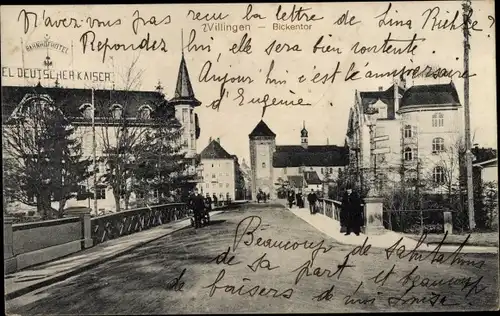 N'avez vous pas reçu la lettre de Lina Richer?
Villingen — Bickentor
Repondez lui, elle sera bien contente
BAHNHOFHOTEL
EL DEUTSCHER KAISER
Aujour hui c'est l'anniversaire
d'Eugenie
Beaucoup de salutations
de sa part et beaucoup
de baisers de moi Louise